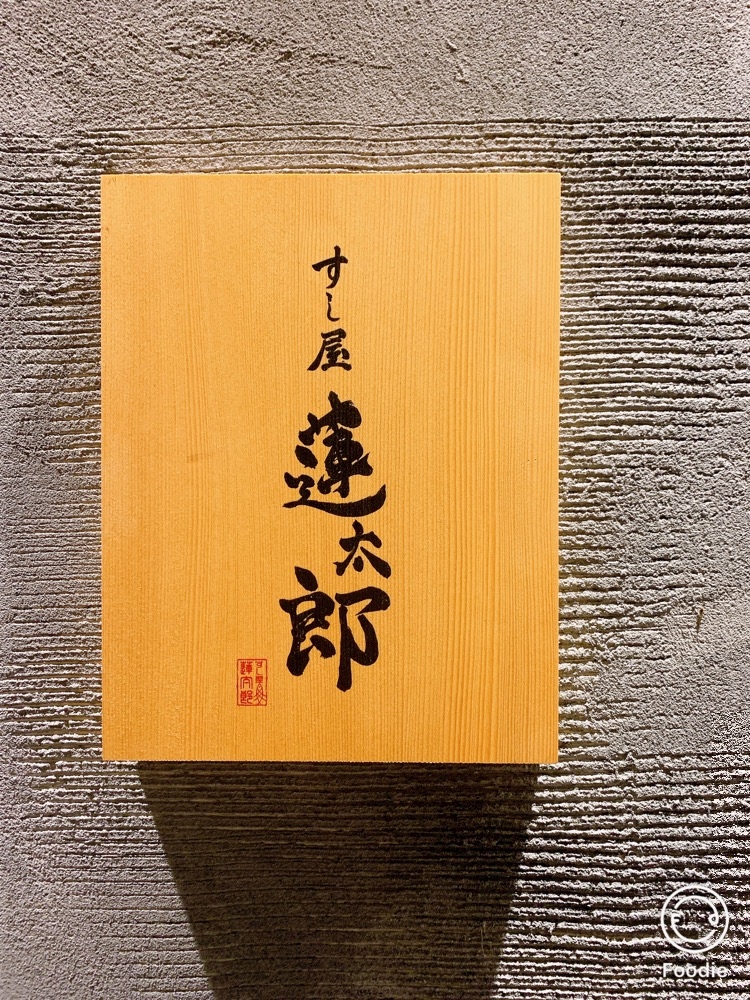 すし屋
蓮太郎
Foodie